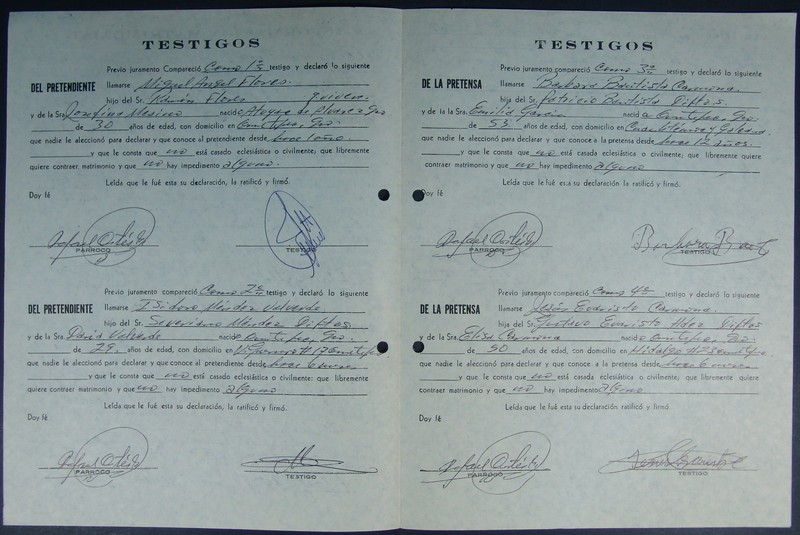 TESTIGOS
Previo juramento Compareció Como 1er testigo y declaró lo siguiente
DEL PRETENDIENTE llamarse Miguel Angel Flores.
hijo del Sr. Ramón Flores
y de la Sra. Josefina nació Atoyac de Gro
de 30 años de edad, con domicilio en Gro.
que nadie le aleccionó para declarar y que conoce al pretendiente desde hace años
y que le consta que no está casado eclesiástica o civilmente; que libremente
quiere contraer matrimonio y que no hay impedimento alguno.
Leída que le fué esta su declaración, la ratificó y firmó.
Doy fé
PARROCO
TESTIGO
Previo juramento compareció Como 2o testigo y declaró lo siguiente
DEL PRETENDIENTE llamarse Isidoro Méndez Valverde
hijo del Sr. Severiano Méndez Diftos.
y de la Sra. David Valverde nació Gro.
de 29 años de edad, con domicilio en
que nadie le aleccionó para declarar y que conoce al pretendiente desde hace
y que le consta que no está casado eclesiástica o civilmente: que libremente
quiere contraer matrimonio y que no hay impedimento alguno
Leída que le fué esta su declaración, la ratificó y firmó.
Doy fé
PARROCO
TESTIGO
TESTIGOS
Previo juramento compareció Como 3er testigo y declaró lo siguiente
DE LA PRETENSA llamarse Barbara Bautista Carmona.
hija del Sr. Patricio Bautista Diftos.
y de la Sra. Emilia García nació Gro.
de 53 años de edad, con domicilio en Cuauhtémoc y Galeana
que nadie le aleccionó para declarar y que conoce a la pretensa desde hace 12 años.
y que le consta que no está casada eclesiástica o civilmente; que libremente
quiere contraer matrimonio y que no hay impedimento alguno
Leída que le fué esta su declaración, la ratificó y firmó.
Doy fé
PARROCO
TESTIGO
Previo juramento compareció Como 4o testigo y declaró lo siguiente
DE LA PRETENSA llamarse Jesús Evaristo Carmona.
hijo del Sr. Gustavo Evaristo Diftos
y de la Sra. Elisa Carmona nació Gro.
de 50 años de edad, con domicilio en Hidalgo
que nadie le aleccionó para declarar y que conoce a la pretensa desde hace
y que le consta que no está casada eclesiástica o civilmente; que libremente
quiere contraer matrimonio y que no hay impedimento alguno
Leída que le fué esta su declaración, la ratificó y firmó.
Doy fé
PARROCO
TESTIGO